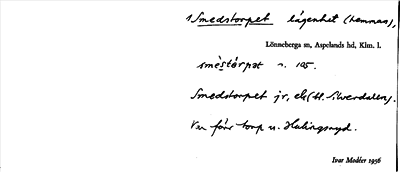 1 Smedstorpet lägenhet (hemman),
Lönneberga sn, Aspelands hd, Klm. l.
smèstårpat n. 105.
Smedstorpet jr, els (tl. Silverdalen).
Var förr torp u. Hulingsryd.
Ivar Modéer 1936